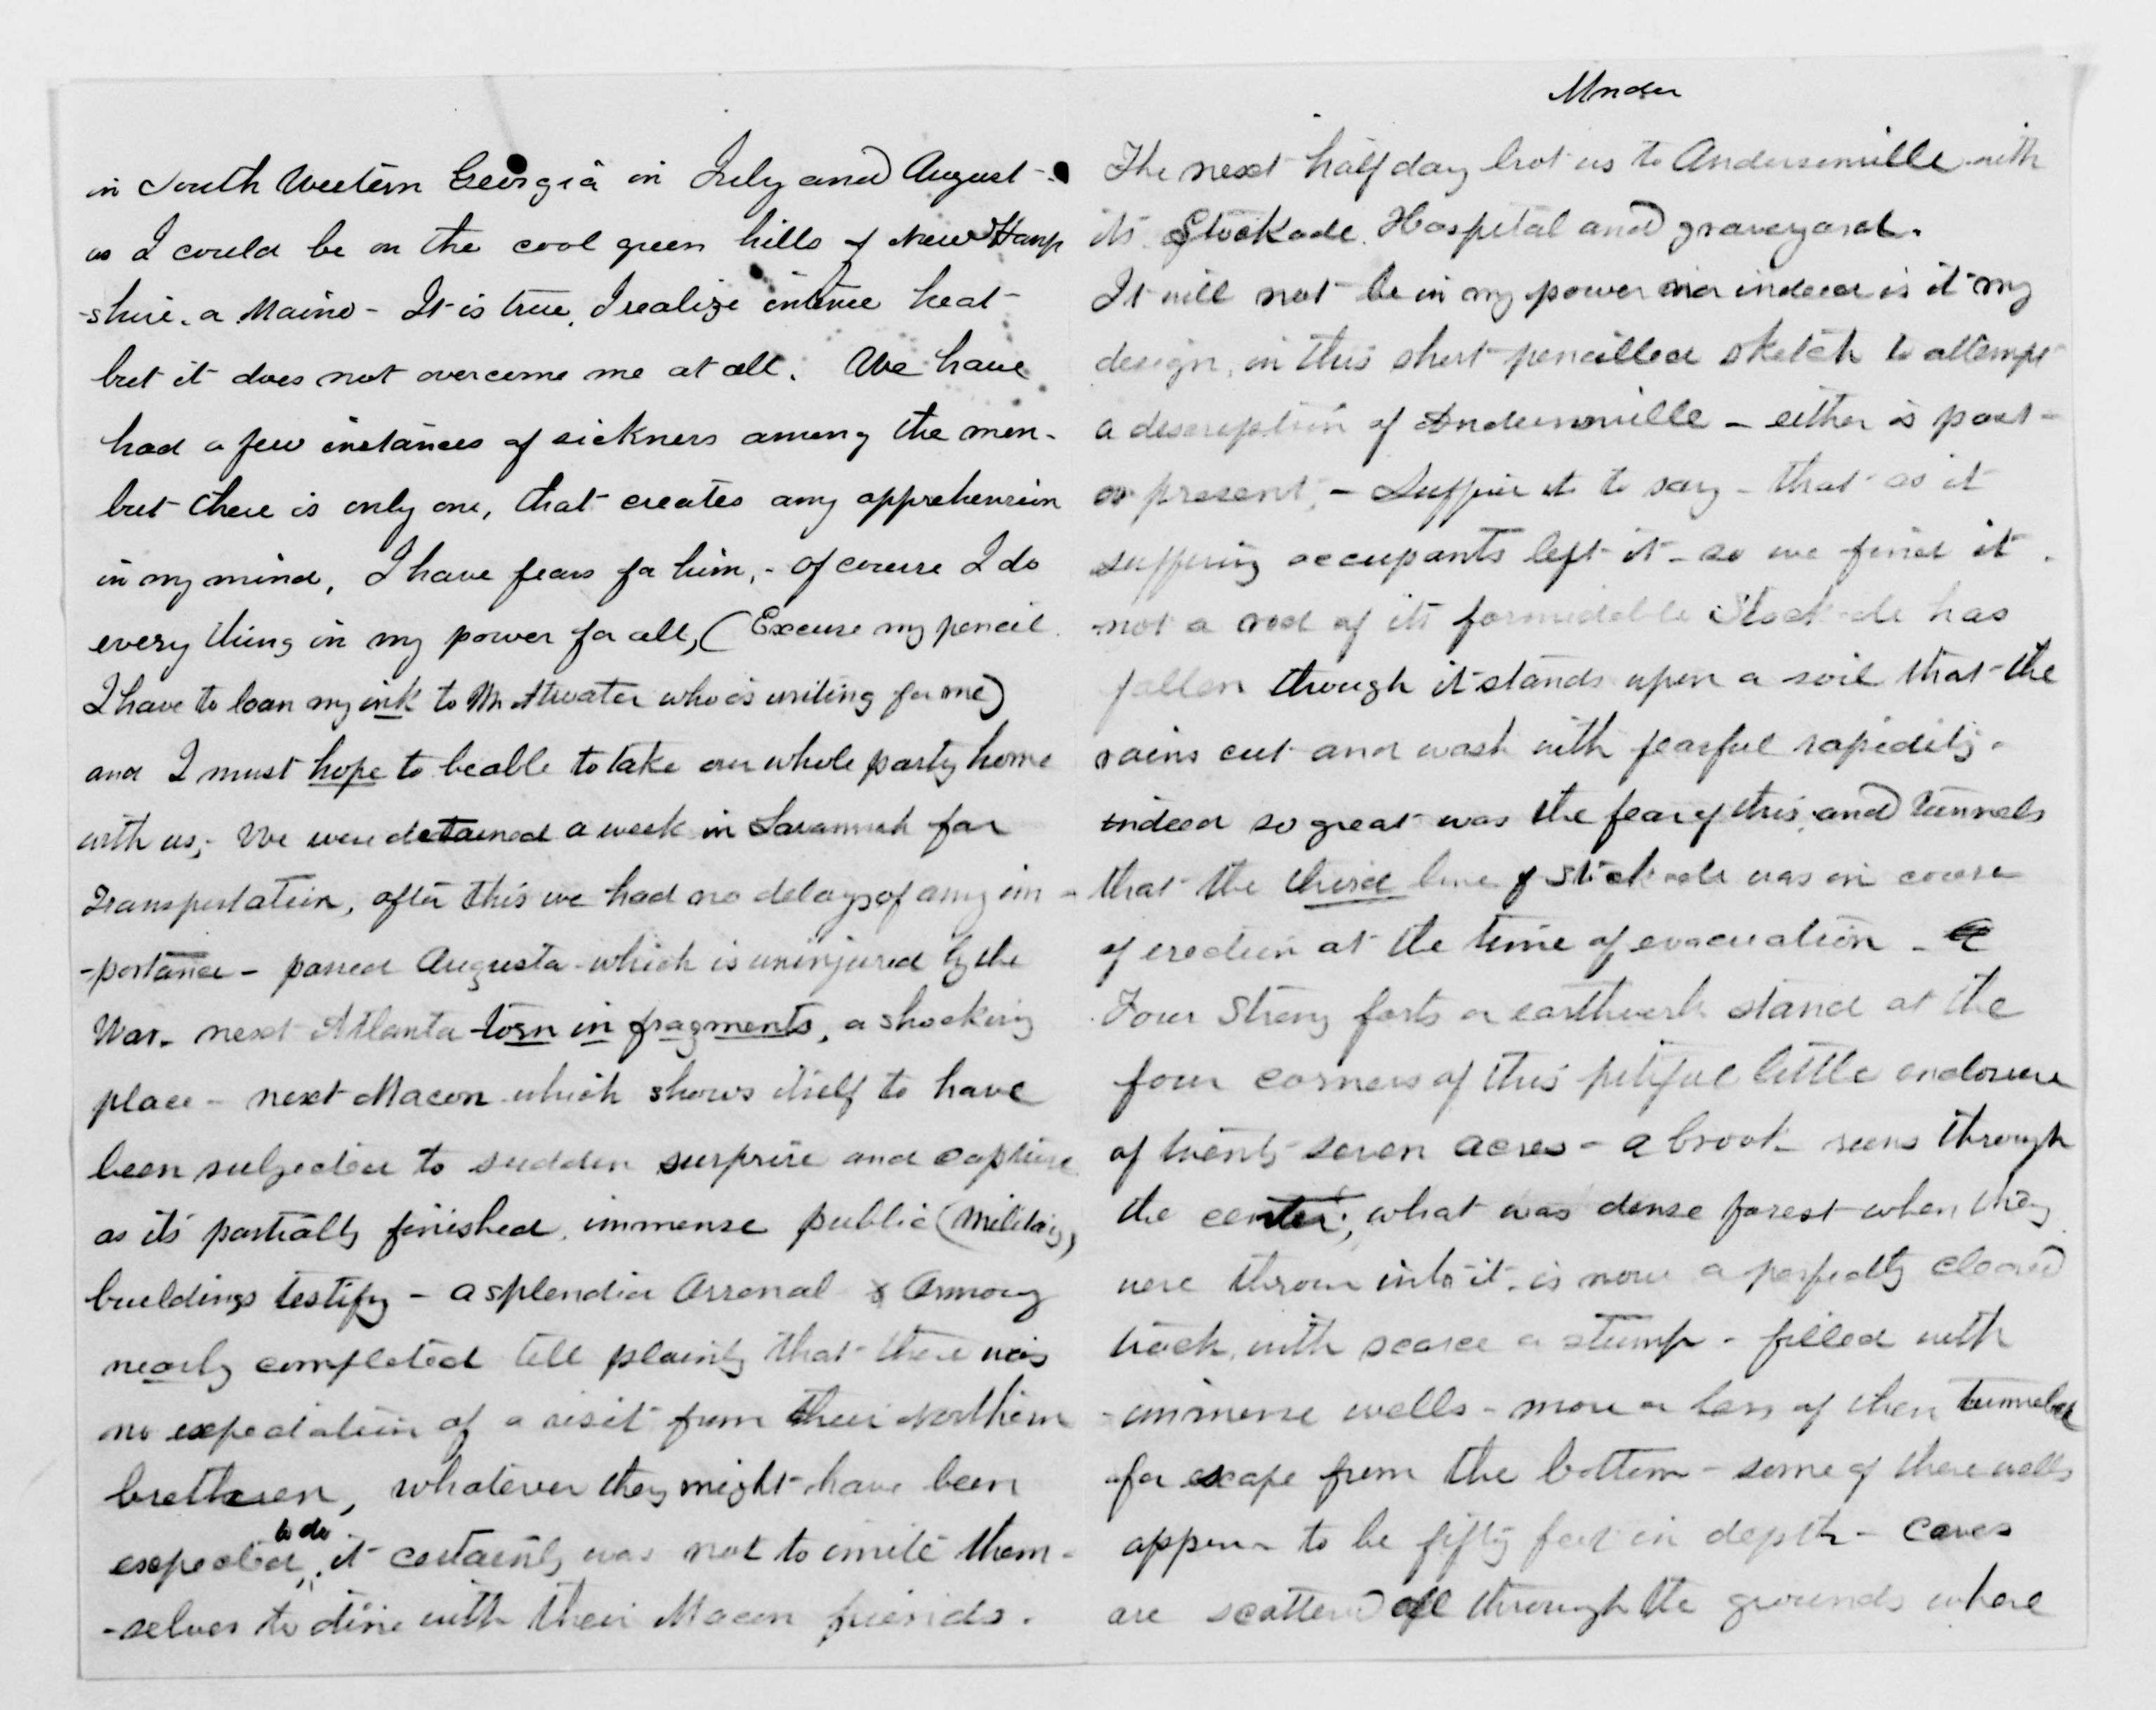 in South Western Georgia in July and August -
as I could be on the cool green hills of New Hamp
-shire. or Maine - It is true, I realize intense heat -
but it does not overcome me at all. We have
had a few instances of sickness among the men -
but there is only one, that creates any apprehension
in my mind, I have fears for him, - of course I do
every thing in my power for all, (Excuse my pencil.
I have to loan my ink to Mr Atwater who is writing for me)
and I must hope to be able to take our whole party home
with us; We were detained a week in Savannah for
Transportation, after this we had no delays of any im -
-portance - passed Augusta which is uninjured by the
War. next Atlanta torn in fragments, a shocking
place - next Macon which shows itself to have
been subjected to sudden surprise and capture
as its partially finished, immense public (Military)
buildings testify - a splendid Arsenal & Armory
nearly completed tell plainly that there was
no expectation of a visit from their Northern
brethren, whatever they might have been
expected to do, it certainly was not to invite them -
-selves to dine with their Macon friends.
Under
The next half day brot us to Andersonville with
its Stockade. Hospital and graveyard.
It will not be in my power nor indeed is it my
design, in this short pencilled sketch to attempt
a description of Andersonville - either is past -
or present, - Suffice it to say - that as it
suffering occupants left it - so we find it.
not a rod of its formidable Stockade has
fallen though it stands upon a soil that the
rains cut and wash with fearful rapidity -
indeed so great was the fear of this, and tunnels
that the third line of stockade was in course
of erection at the time of evacuation -
Four Strong forts or earthwork stand at the
four corners of this pitiful little enclosure
of twenty seven acres - a brook runs through
the center; what was dense forest when they
were thrown into it. is now a perfectly cleared
track, with scarce a stump - filled with
immense wells - more or less of them tunneled
for escape from the bottom - some of these wells
appear to be fifty feet in depth - Caves
are scattered all through the grounds where